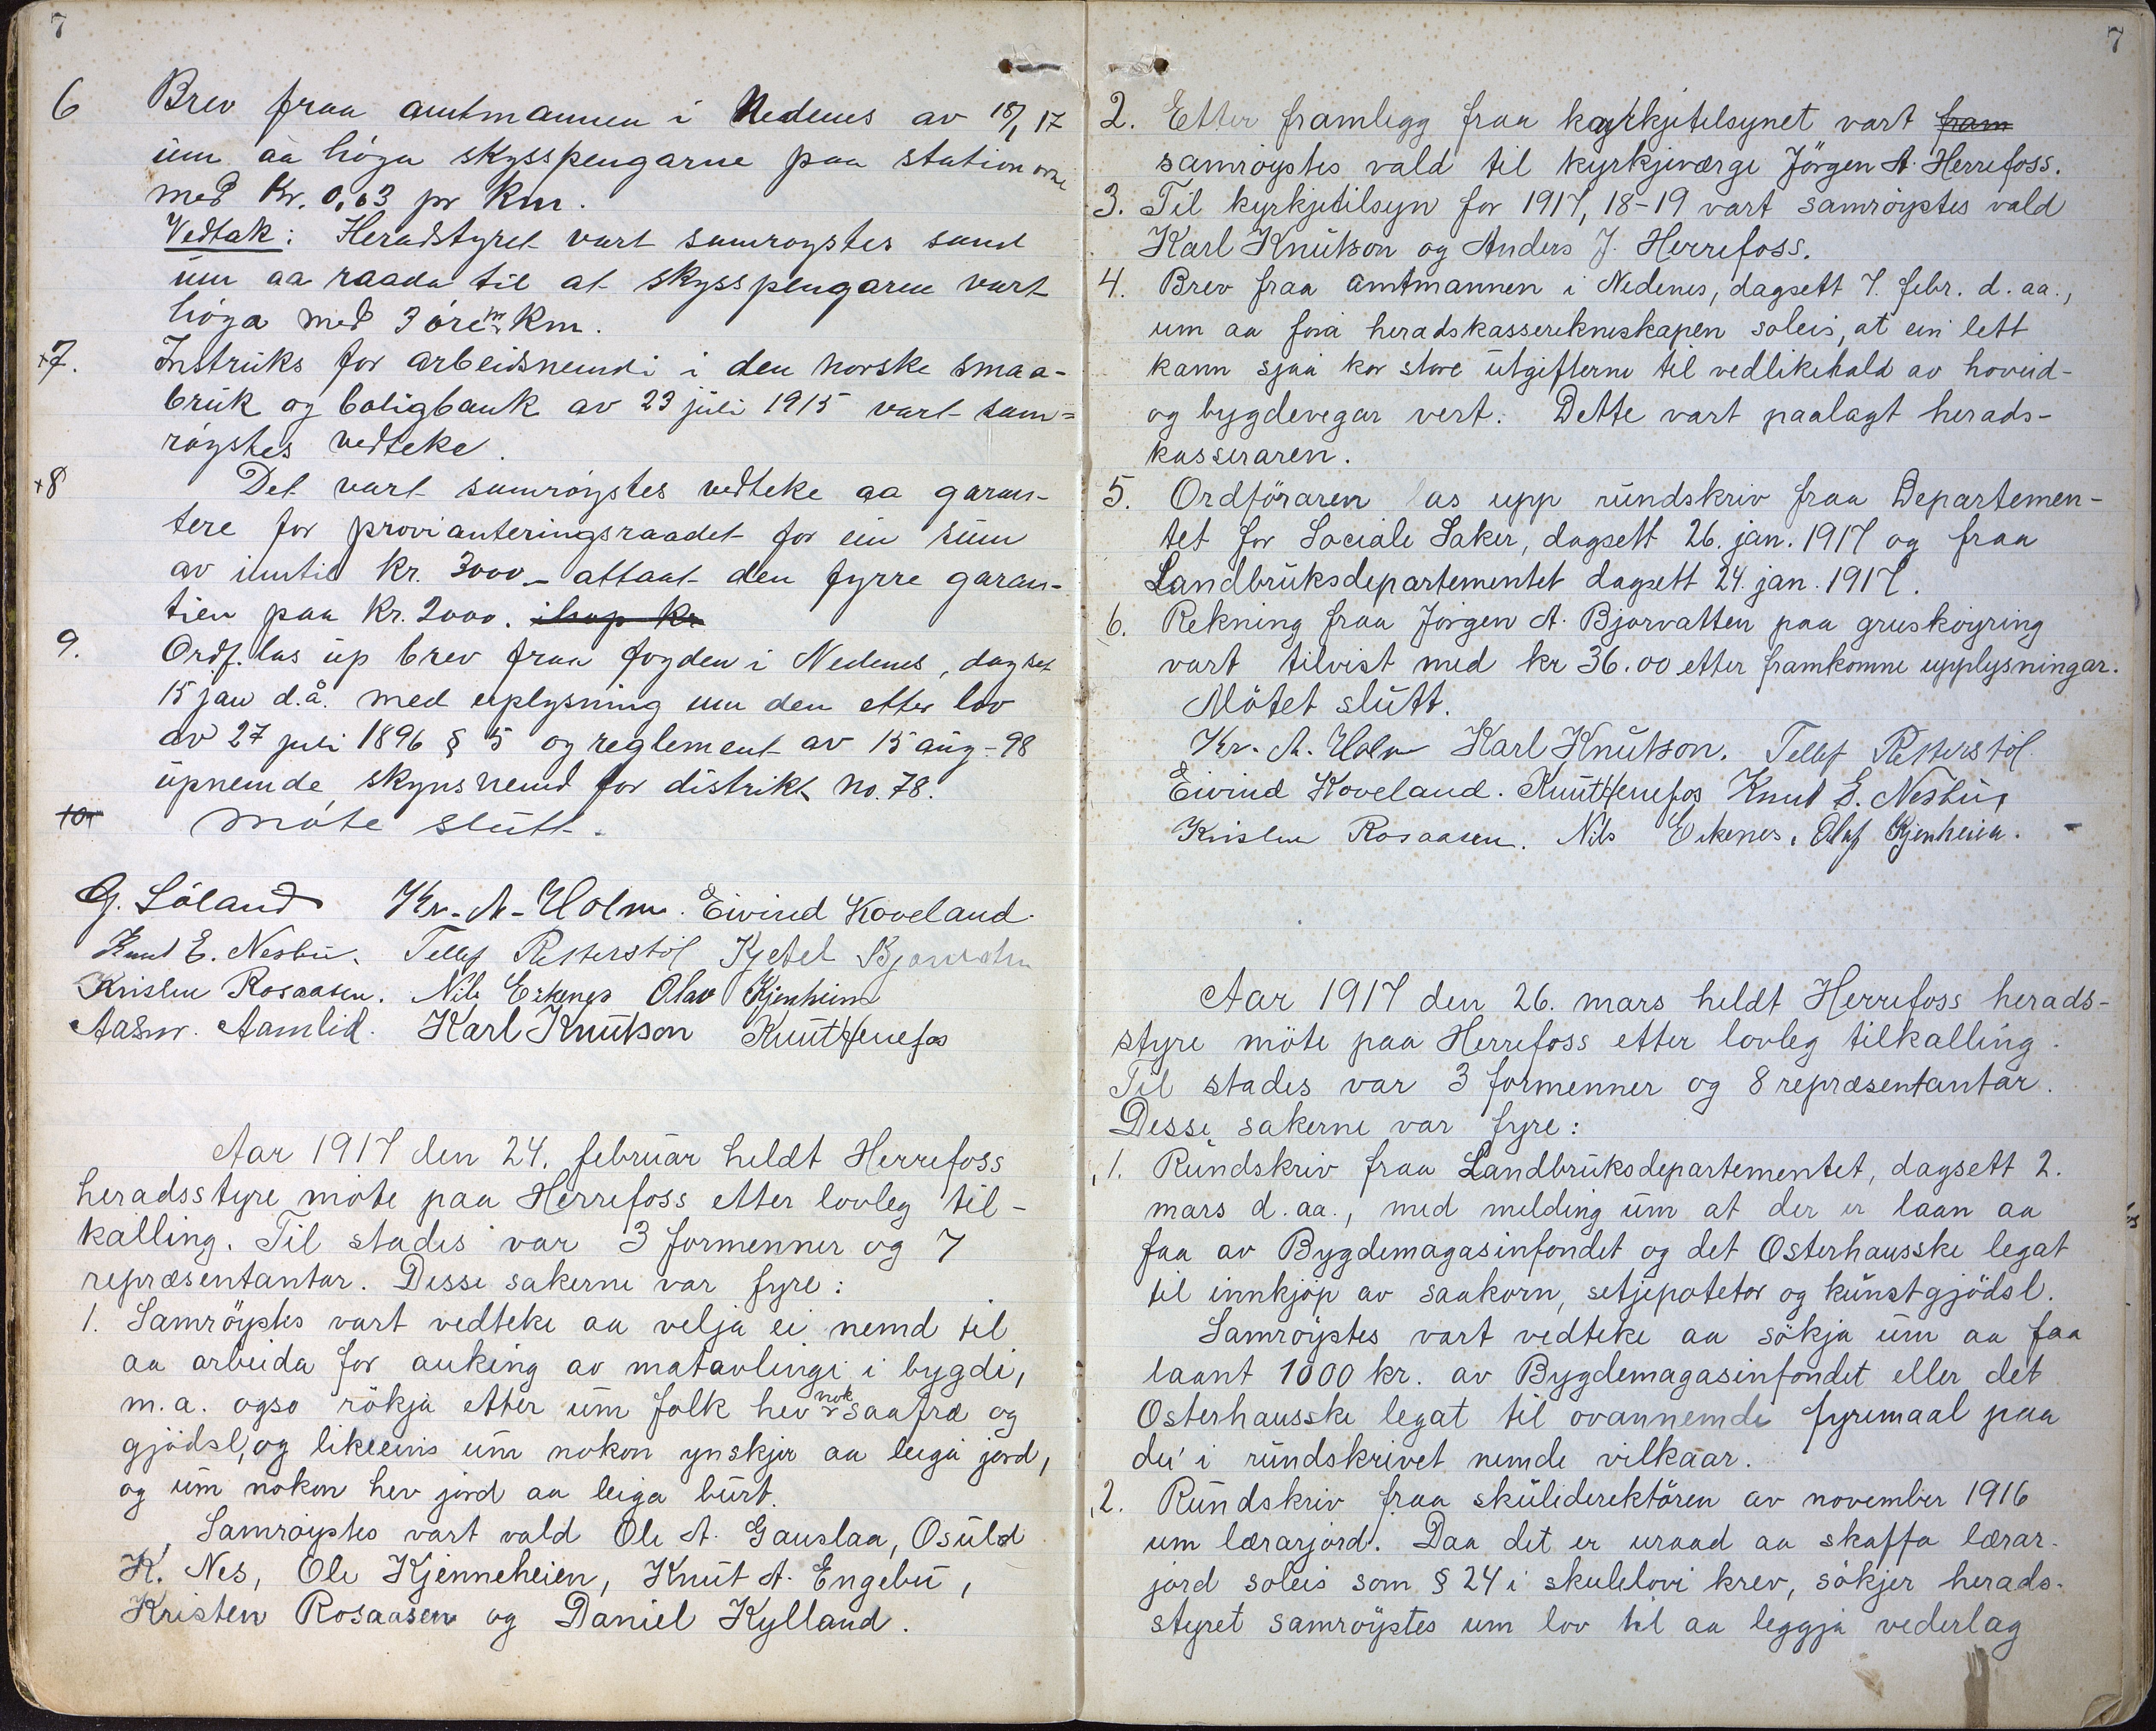 7
6 Brev fraa amtmannen i Nedenes av 18/1 17
um aa höga skysspengarne paa stationarne
med Kr. 0,03 pr Km.
Vedtak: Heradstyret vart samröystes samd
um aa raada til at skysspengarne vart
höga med 3 öre pr Km.
+7. Instruks for arbeidsnemdi i den norske smaa-
bruk og boligbank av 23 juli 1915 vart sam=
röystes vedteke.
+8 Det vart samröystes vedteke aa garan-
tere for provianteringsraadet for ein sum
av inntil Kr. 3000 - attaat den fyrre garan-
tien paa Kr. 2000. ihop kr
9. Ordf. las up brev fraa fogden i Nedenes, dagset
15 jan d.å. med uplysning um den etter lov
av 27 juli 1896 § 5 og reglement av 15 aug - 98
upnemde skynsnemd for distrikt no. 78.
10 Möte slutt.
G. Söland Kr. A. Holm. Eivind Koveland.
Knut E. Nesbu. Tellef Retterstöl Kjetel Bjorvatn
Kristen Rosaasen. Nils Eikenes Olav Kjenheien
Aasm. Aamlid. Karl Knutson Knut Henefos
Aar 1917 den 24. februar heldt Herrefoss
heradsstyre möte paa Herrefoss etter lovleg til-
kalling. Til stades var 3 formenner og 7
repræsentantar. Desse sakerne var fyre:
1. Samröystes vart vedteke aa velja ei nemd til
aa arbeida for auking av matavlingi i bygdi,
m.a. ogso rökja etter um folk hev nok saafræ og
gjödsl, og likeeins um nokon ynskjer aa leiga jord,
og um nokon hev jord aa leiga burt.
Samröystes vart vald Ole A. Gauslaa, Osuld
K. Nes, Ole Kjenneheien, Knut A. Engebu,
Kristen Rosaasen og Daniel Kylland.
7
2. Etter framlegg fraa kyrkjetilsynet vart fram
samröystes vald til kyrkjeværge Jörgen A. Herrefoss.
3. Til kyrkjetilsyn for 1917, 18-19 vart samröystes vald
Karl Knutson og Anders J. Herrefoss.
4. Brev fraa amtmannen i Nedenes, dagsett 7. febr. d. aa.,
um aa föra heradskasserekneskapen soleis, at ein lett
kann sjaa kor store utgifterne til vedlikehald av hovud-
og bygdevegar vert. Dette vart paalagt herads-
kasseraren.
5. Ordföraren las upp rundskriv fraa Departemen-
tet for Sociale Saker, dagsett 26. jan. 1917 og fraa
Landbruksdepartementet dagsett 24. jan. 1917.
6. Rekning fraa Jörgen A. Bjorvatten paa grusköyring
vart tilvist med kr 36.00 etter framkomne upplysningar.
Mötet slutt.
Kr. A. Holm Karl Knutson. Tellef Retterstöl
Eivind Koveland. Knut Henefos Knut E. Nesbu,
Kristen Rosaasen. Nils Eikenes. Olaf Kjenheien.
Aar 1917 den 26. mars heldt Herrefoss herads-
styre möte paa Herrefoss etter lovleg tilkalling.
Til stades var 3 formenner og 8 repræsentantar.
Desse sakerne var fyre:
1. Rundskriv fraa Landbruksdepartementet, dagsett 2.
mars d. aa., med melding um at der er laan aa
faa av Bygdemagasinfondet og det Osterhausske legat
til innkjöp av saakorn, setjepoteter og kunstgjödsl.
Samröystes vart vedteke aa sökja um aa faa
laant 1000 kr. av Bygdemagasinfondet eller det
Osterhausske legat til ovannemde fyremaal paa
dei i rundskrivet nemde vilkaar.
2. Rundskriv fraa skulederektören av november 1916
um lærarjord. Daa det er uraad aa skaffa lærar-
jord soleis som § 24 i skulelovi krev, sökjer herads-
styret samröystes um lov til aa leggja vederlag